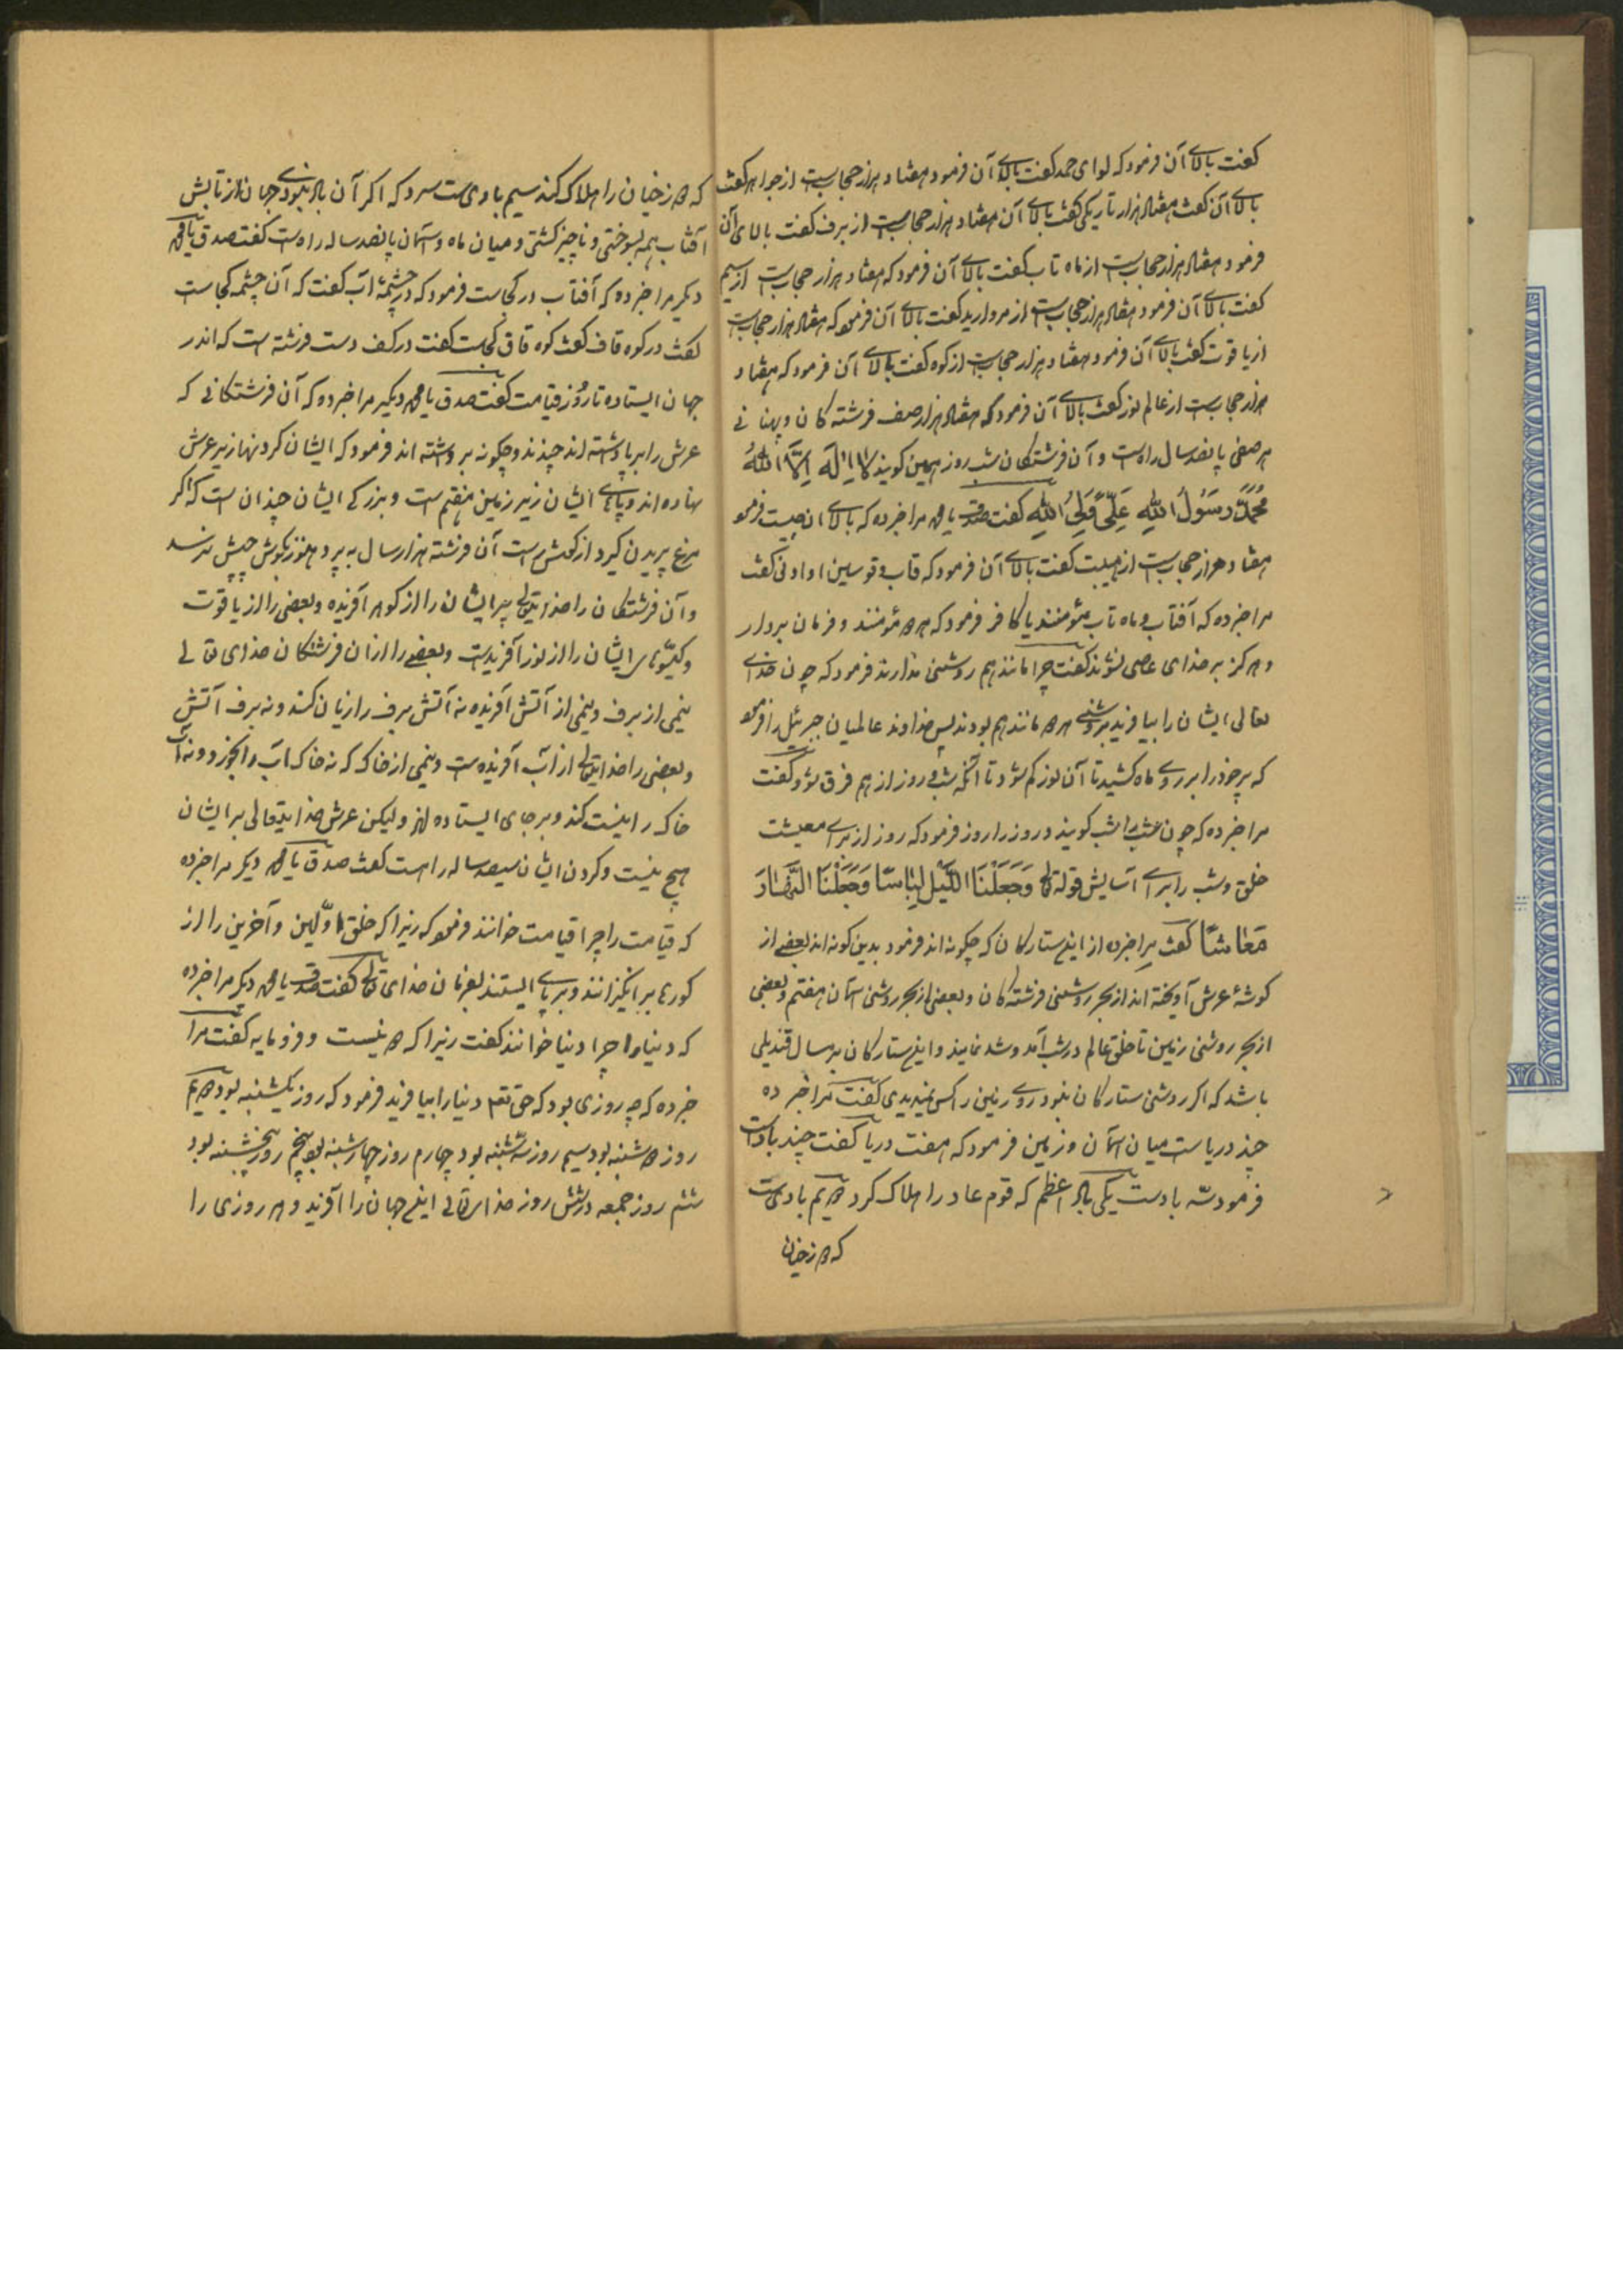 کفت بالای آن فرمود که لوای حمد کفت بالای آن فرمود هفتاد هزار حجابست از جواهر کفت
بالای آن کفت هفتاد هزار تاریکی کفت بالای آن هفتاد هزار حجابست از برف کفت بالای آن
فرمود هفتاد هزار حجابست از ماه تاب کفت بالای آن فرمود که هفتاد هزار حجابست از سیم
کفت بالای آن فرمود هفتاد هزار حجابست از مروارید کفت بالای آن فرمود که هفتاد هزار حجابست
از یاقوت کفت بالای آن فرمود هفتاد هزار حجابست از کوه کفت بالای آن فرمود که هفتاد
هزار حجابست از عالم نور کفت بالای آن فرمود که هفتاد هزار صف فرشته کان و پهنا نی
هر صفی پانصد سال راه است و آن فرشتکان شب روز همین کویند لَا اِلٰهَ اِلَّا اللهُ
مُحَمَّدٌ رَسُولُ اللهِ عَلِیٌّ وَلِیُّ اللهِ کفت صدق یا محمد مرا خبر ده که بالای آن چیست فرمود
هفتاد هزار حجابست از هیبت کفت بالای آن فرمود که قاب قوسین او ادنی کفت
مرا خبر ده که آفتاب و ماه تاب مؤمنند یا کافر فرمود که هر دو مؤمنند و فرمان بردار
و هرکز بر خدای عصی نشوند کفت چرا مانند هم روشنی ندارند فرمود که چون خدای
تعالی ایشان را بیافرید بروشنی هر دو مانند هم بودند پس خداوند عالمیان جبرئیل را فرمود
که پر خود را بر روی ماه کشید تا آن نور کم شود تا آنکه شب و روز از هم فرق شود کفت
مرا خبر ده که چون شب را شب کویند و روز را روز فرمود که روز از برای معیشت
خلق و شب را برای آسایش قوله تع وَجَعَلْنَا اللَّیْلَ لِبَاسًا وَجَعَلْنَا النَّهَارَ
مَعَاشًا کفت مرا خبر ده از این ستارکان که چکونه اند فرمود بدین کونه اند بعضی از
کوشهٔ عرش آویخته اند از بهر روشنی فرشته کان و بعضی از بهر روشنی آسمان هفتم و بعضی
از بهر روشنی زمین تا خلق عالم در شب آمد و شد نمایند و این ستارکان بر مسال قندیلی
باشد که اکر روشنی ستارکان نبود روی زمین را کس نمیدیدی کفت مرا خبر ده
چند دریاست میان آسمان و زمین فرمود که هفت دریا کفت چند بادست
فرمود سه بادست یکی باد اعظم که قوم عاد را هلاک کرد دویم بادیست
که دوزخیان
که دوزخیان را هلاک کند سیم بادی ست سرد که اکر آن باد نبودی جهان از تابش
آفتاب همه بسوختی و ناچیز کشتی و میان ماه و آسمان پانصد ساله راه است کفت صدق یا محمد
دیکر مرا خبر ده که آفتاب در کجاست فرمود که در چشمهٔ آب کفت که آن چشمه کجاست
کفت در کوه قاف کفت کوه قاف کجاست کفت در کف دست فرشته است که اندر
جهان ایستاده تا روز قیامت کفت صدق یا محمد دیکر مرا خبر ده که آن فرشتکانی که
عرش را برپا داشته اند چندند و چکونه برداشته اند فرمود که ایشان کردنها زیر عرش
نهاده اند و پاهای ایشان زیر زمین هفتم است و بزرکی ایشان چندان است که اکر
مرغ پریدن کیرد از کوش راست آن فرشته هزار سال به پرد هنوز بکوش چپش نرسد
و آن فرشتکان را خدایتعالی سر ایشان را از کوهر آفریده و بعضی را از یاقوت
و کیسوهای ایشان را از نور آفریدست و بعضی را از آن فرشتکان خدای تعالی
نیمی از برف و نیمی از آتش آفریده نه آتش برف را زیان کند و نه برف آتش
و بعضی را خدایتعالی از آب آفریده ست و نیمی از خاک که نه خاک آب را بخورد و نه آب
خاک را نیست کند و بر جای ایستاده اند و لیکن عرش خدایتعالی بر ایشان
هیچ نیست و کردن ایشان سیصد ساله راه است کفت صدق یا محمد دیکر مرا خبر ده
که قیامت را چرا قیامت خوانند فرمود که زیرا که خلق اوّلین و آخرین را از
کورها بر انکیزانند و بر پای ایستند بفرمان خدای تعالی کفت صدق یا محمد دیکر مرا خبر ده
که دنیا را چرا دنیا خوانند کفت زیرا که دو نیست و فرومایه کفت مرا
خبر ده که چه روزی بود که حق تعم دنیا را بیافرید فرمود که روز یکشنبه بود دویم
روز دو شنبه بود سیم روز سه شنبه بود چهارم روز چهارشنبه بود پنجم روز پنجشنبه بود
ششم روز جمعه در شش روز خدایتعالی این جهان را آفرید و هر روزی را